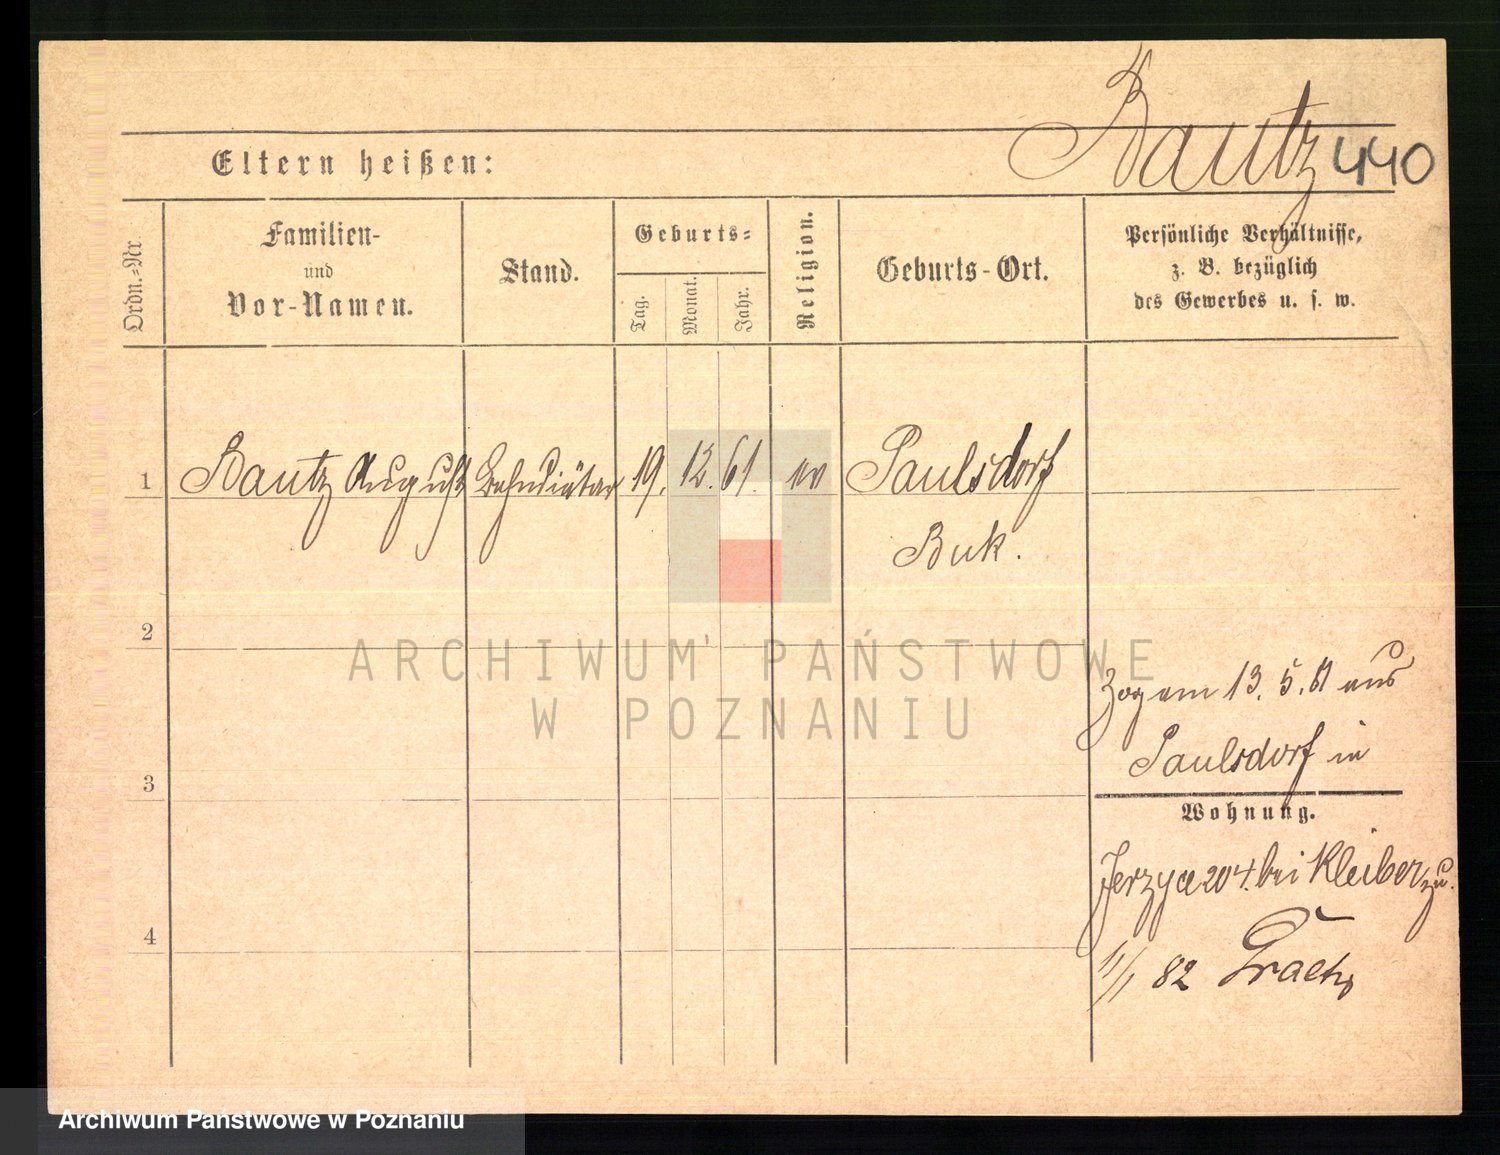 Bautz 440
Eltern heißen:
Ordn.=Nr.
Familien-
und
Vor-Namen.
Stand.
Geburts=
Tag.
Monat.
Jahr.
Religion.
Geburts-Ort.
Persönliche Verhältnisse,
z. B. bezüglich
des Gewerbes u. s. w.
1 Bautz August 19. 12. 61. ev Paulsdorf
Buk.
2
ARCHIWUM PAŃSTWOWE
W POZNANIU
Zog am 13. 5. 81 aus
Paulsdorf in
3
Wohnung.
Jerzyce 204. bei Kleiber zu.
4
11/1 82 Graetz
Archiwum Państwowe w Poznaniu